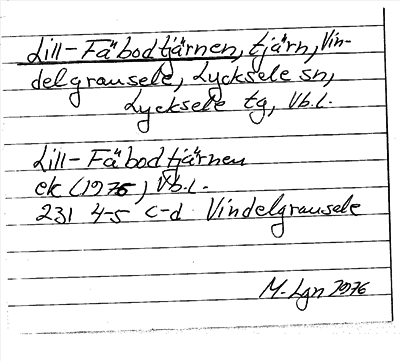 Lill-Fäbodtjärnen, tjärn, Vin-
delgransele, Lycksele sn,
Lycksele tg, Vb.l.
Lill-Fäbodtjärnen
ek (1976) Vb.l.
231 4-5 c-d Vindelgransele
M. Lgn 1976